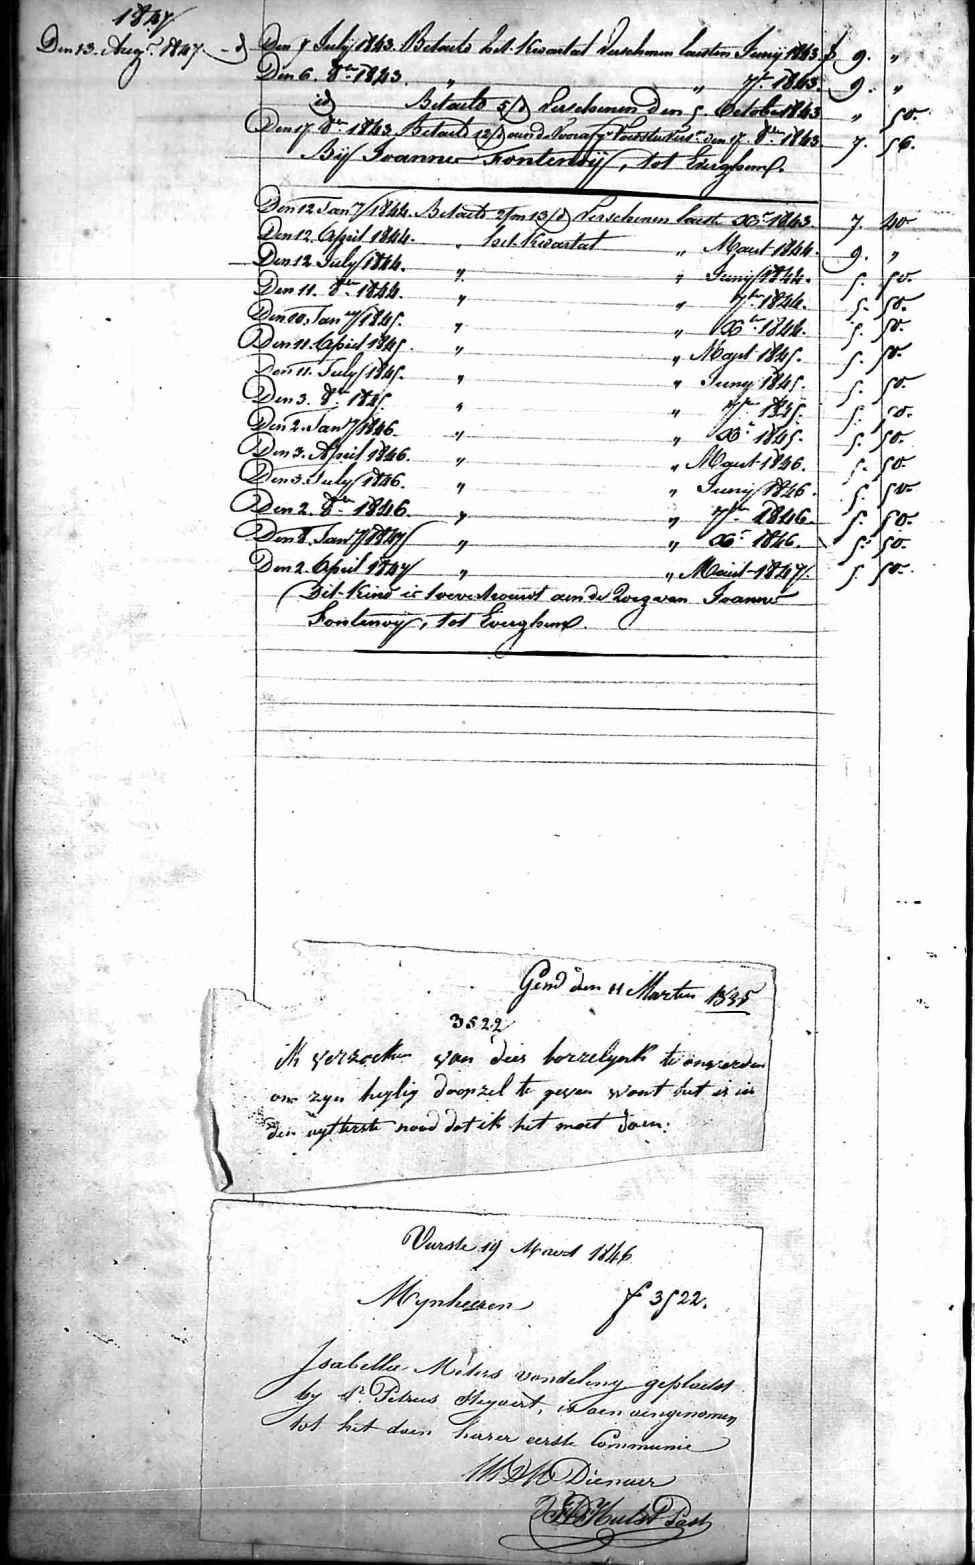 1847
Den 13. Aug.t 1847.
Den 7 July 1843. Betaeld het Kwartael verschenen laesten Juny 1843 f 9. "
Den 6. 8.bre 1843. " " 7.bre 1843. 9. "
id Betaeld 5/d verschenen den 5. October 1843 " 50.
Den 17. 8.bre 1843 Betaeld 12/d aen de den 17. 8.bre 1843 7. 56.
Bij Joanne Fontenoij, tot Everghem.
Den 12 Jan.y 1844. Betaeld 2/m 13/d Verschenen laest Xb.re 1843. 7. 40
Den 12. April 1844. " het Kwartael " Maert 1844. 9. "
Den 12. July 1844. " " Juny 1844. 5. 50.
Den 11. 8.bre 1844. " " 7.bre 1844. 5. 50.
Den 10. Jan.y 1845. " " Xb.re 1844. 5. 50
Den 11. April 1845 " " Maert 1845. 5. 50.
Den 11. July 1845. " " Juny 1845. 5. 50
Den 3. 8.bre 1845 " " 7.bre 1845. 5. 50.
Den 2. Jan.y 1846. " " Xb.re 1845. 5. 50.
Den 3. April 1846. " " Maert 1846. 5. 50
Den 3. July 1846. " " Juny 1846. 5. 50
Den 2. 8.bre 1846. " " 7.bre 1846. 5. 50.
Den 8. Jan.y 1847 " " Xb.re 1846. 5. 50.
Den 2. April 1847 " " Maert 1847. 5. 50.
Dit Kind is toevertrouwt aen de Zorg van Joanne
Fontenoy, tot Everghem.
Gend den 11 Marten 1835
3522
ik verzoeken van dees borzelynk te anverden
om zyn heylig doopzel te geven want het is in
den uytterste nood dat ik het moet doen.
Vurste 19 Maert 1846
Mynheeren f 3522.
Isabella Méters vondeling geplaetst
by Petrus Steyaert, is aen aengenomen
tot het doen harer eerste Communie
Dienaer
Hulst Past